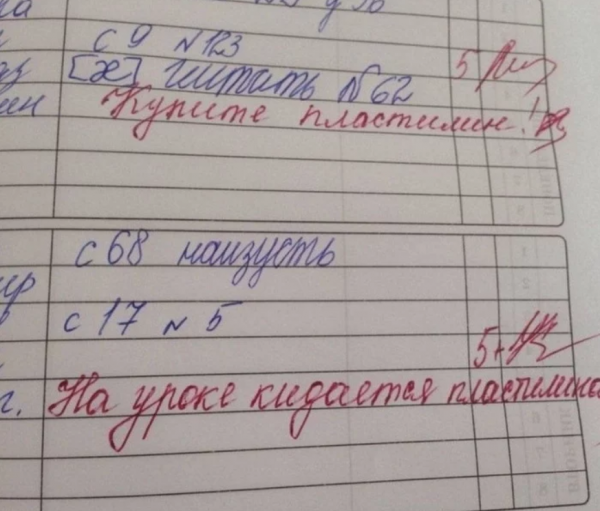 с 9 N 123
[ж] читать № 62
5
Купите пластилин!
с 68 наизусть
с 17 № 5
5+
На уроке кидается пластилино